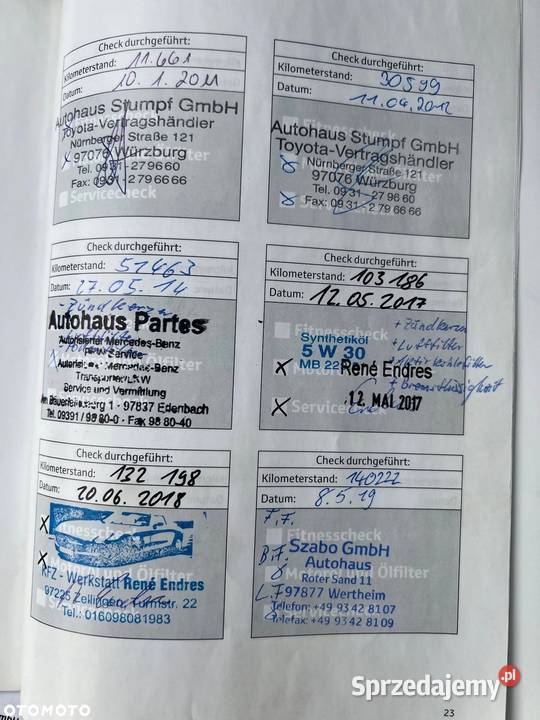 Check durchgeführt:
Kilometerstand: 11.661
Datum: 10.1.2011
Autohaus Stumpf GmbH
Toyota-Vertragshändler
Nürnberger Straße 121
97076 Würzburg
Tel. 09 31 - 27 96 60
Fax: 09 31 - 2 79 66 66
Servicecheck
Check durchgeführt:
Kilometerstand: 30599
Datum: 11.04.2012
Fitnesscheck
Autohaus Stumpf GmbH
Toyota-Vertragshändler
Nürnberger Straße 121
97076 Würzburg
Tel. 09 31 - 27 96 60
Fax: 09 31 - 2 79 66 66
Check durchgeführt:
Kilometerstand: 51463
Datum: 27.05.14
- Zündkerzen
Autohaus Partes
Autorisierter Mercedes-Benz
PKW Service
Autorisierter Mercedes-Benz
Transporter/LKW
Service und Vermittlung
97837 Erlenbach
Tel. 09391 / 98 80-0 · Fax 98 80-40
Check durchgeführt:
Kilometerstand: 103 186
Datum: 12.05.2017
Fitnesscheck
+ Zündkerzen
Synthetiköl
+ Luftfilter
5 W 30
MB 22
René Endres
+ Bremsflüssigkeit
12. MAI 2017
Servicecheck
Check durchgeführt:
Kilometerstand: 132 198
Datum: 20.06.2018
Fitnesscheck
Motoröl und Ölfilter
KFZ - Werkstatt René Endres
97225 Zellingen, Turmstr. 22
Tel.: 016098081983
Check durchgeführt:
Kilometerstand: 140222
Datum: 8.5.19
Fitnesscheck
Szabo GmbH
Autohaus
Motoröl und Ölfilter
Roter Sand 11
97877 Wertheim
Telefon: +49 93 42 81 07
Telefax: +49 93 42 81 09
23
OTOMOTO
Sprzedajemy.pl